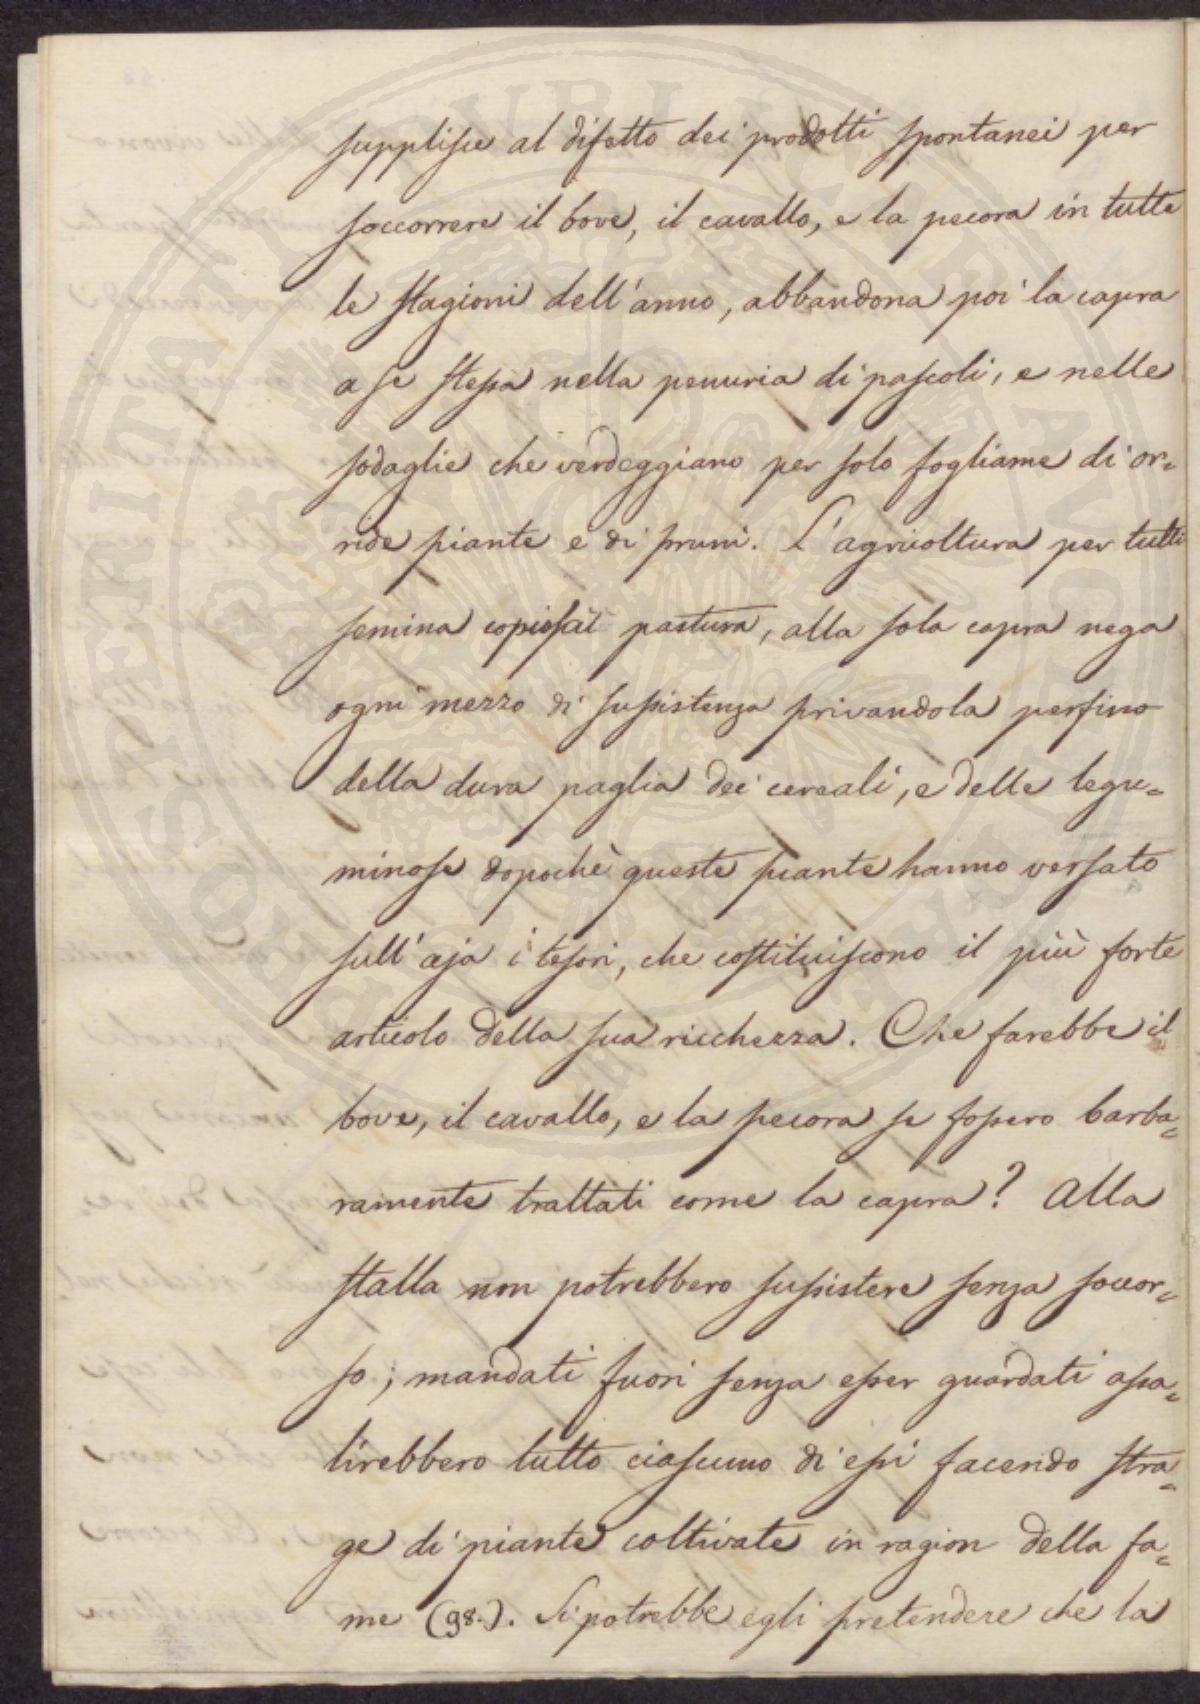 supplisce al difetto dei prodotti spontanei per
soccorrere il bove, il cavallo, e la pecora in tutte
le stagioni dell'anno, abbandona poi la capra
a se stessa nella penuria di pascoli, e nelle
sodaglie che verdeggiano per solo fogliame di or=
ride piante e di pruni. L'agricoltura per tutti
semina copiosa pastura, alla sola capra nega
ogni mezzo di sussistenza privandola perfino
della dura paglia dei cereali, e delle legu=
minose dopochè queste piante hanno versato
sull'aja i tesori, che costituiscono il più forte
articolo della sua ricchezza. Che farebbe il
bove, il cavallo, e la pecora se fossero barba=
ramente trattati come la capra? Alla
stalla non potrebbero sussistere senza soccor=
so; mandati fuori senza esser guardati assa=
lirebbero tutto ciascuno di essi facendo stra=
ge di piante coltivate in ragion della fa=
me (98.). Si potrebbe egli pretendere che la